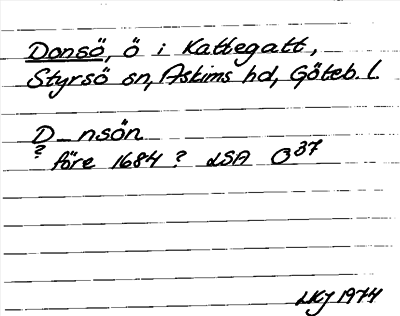 Donsö, ö i Kattegatt,
Styrsö sn, Askims hd, Göteb. l.
D_nsön
? före 1684 ? LSA O37
LKJ 1974